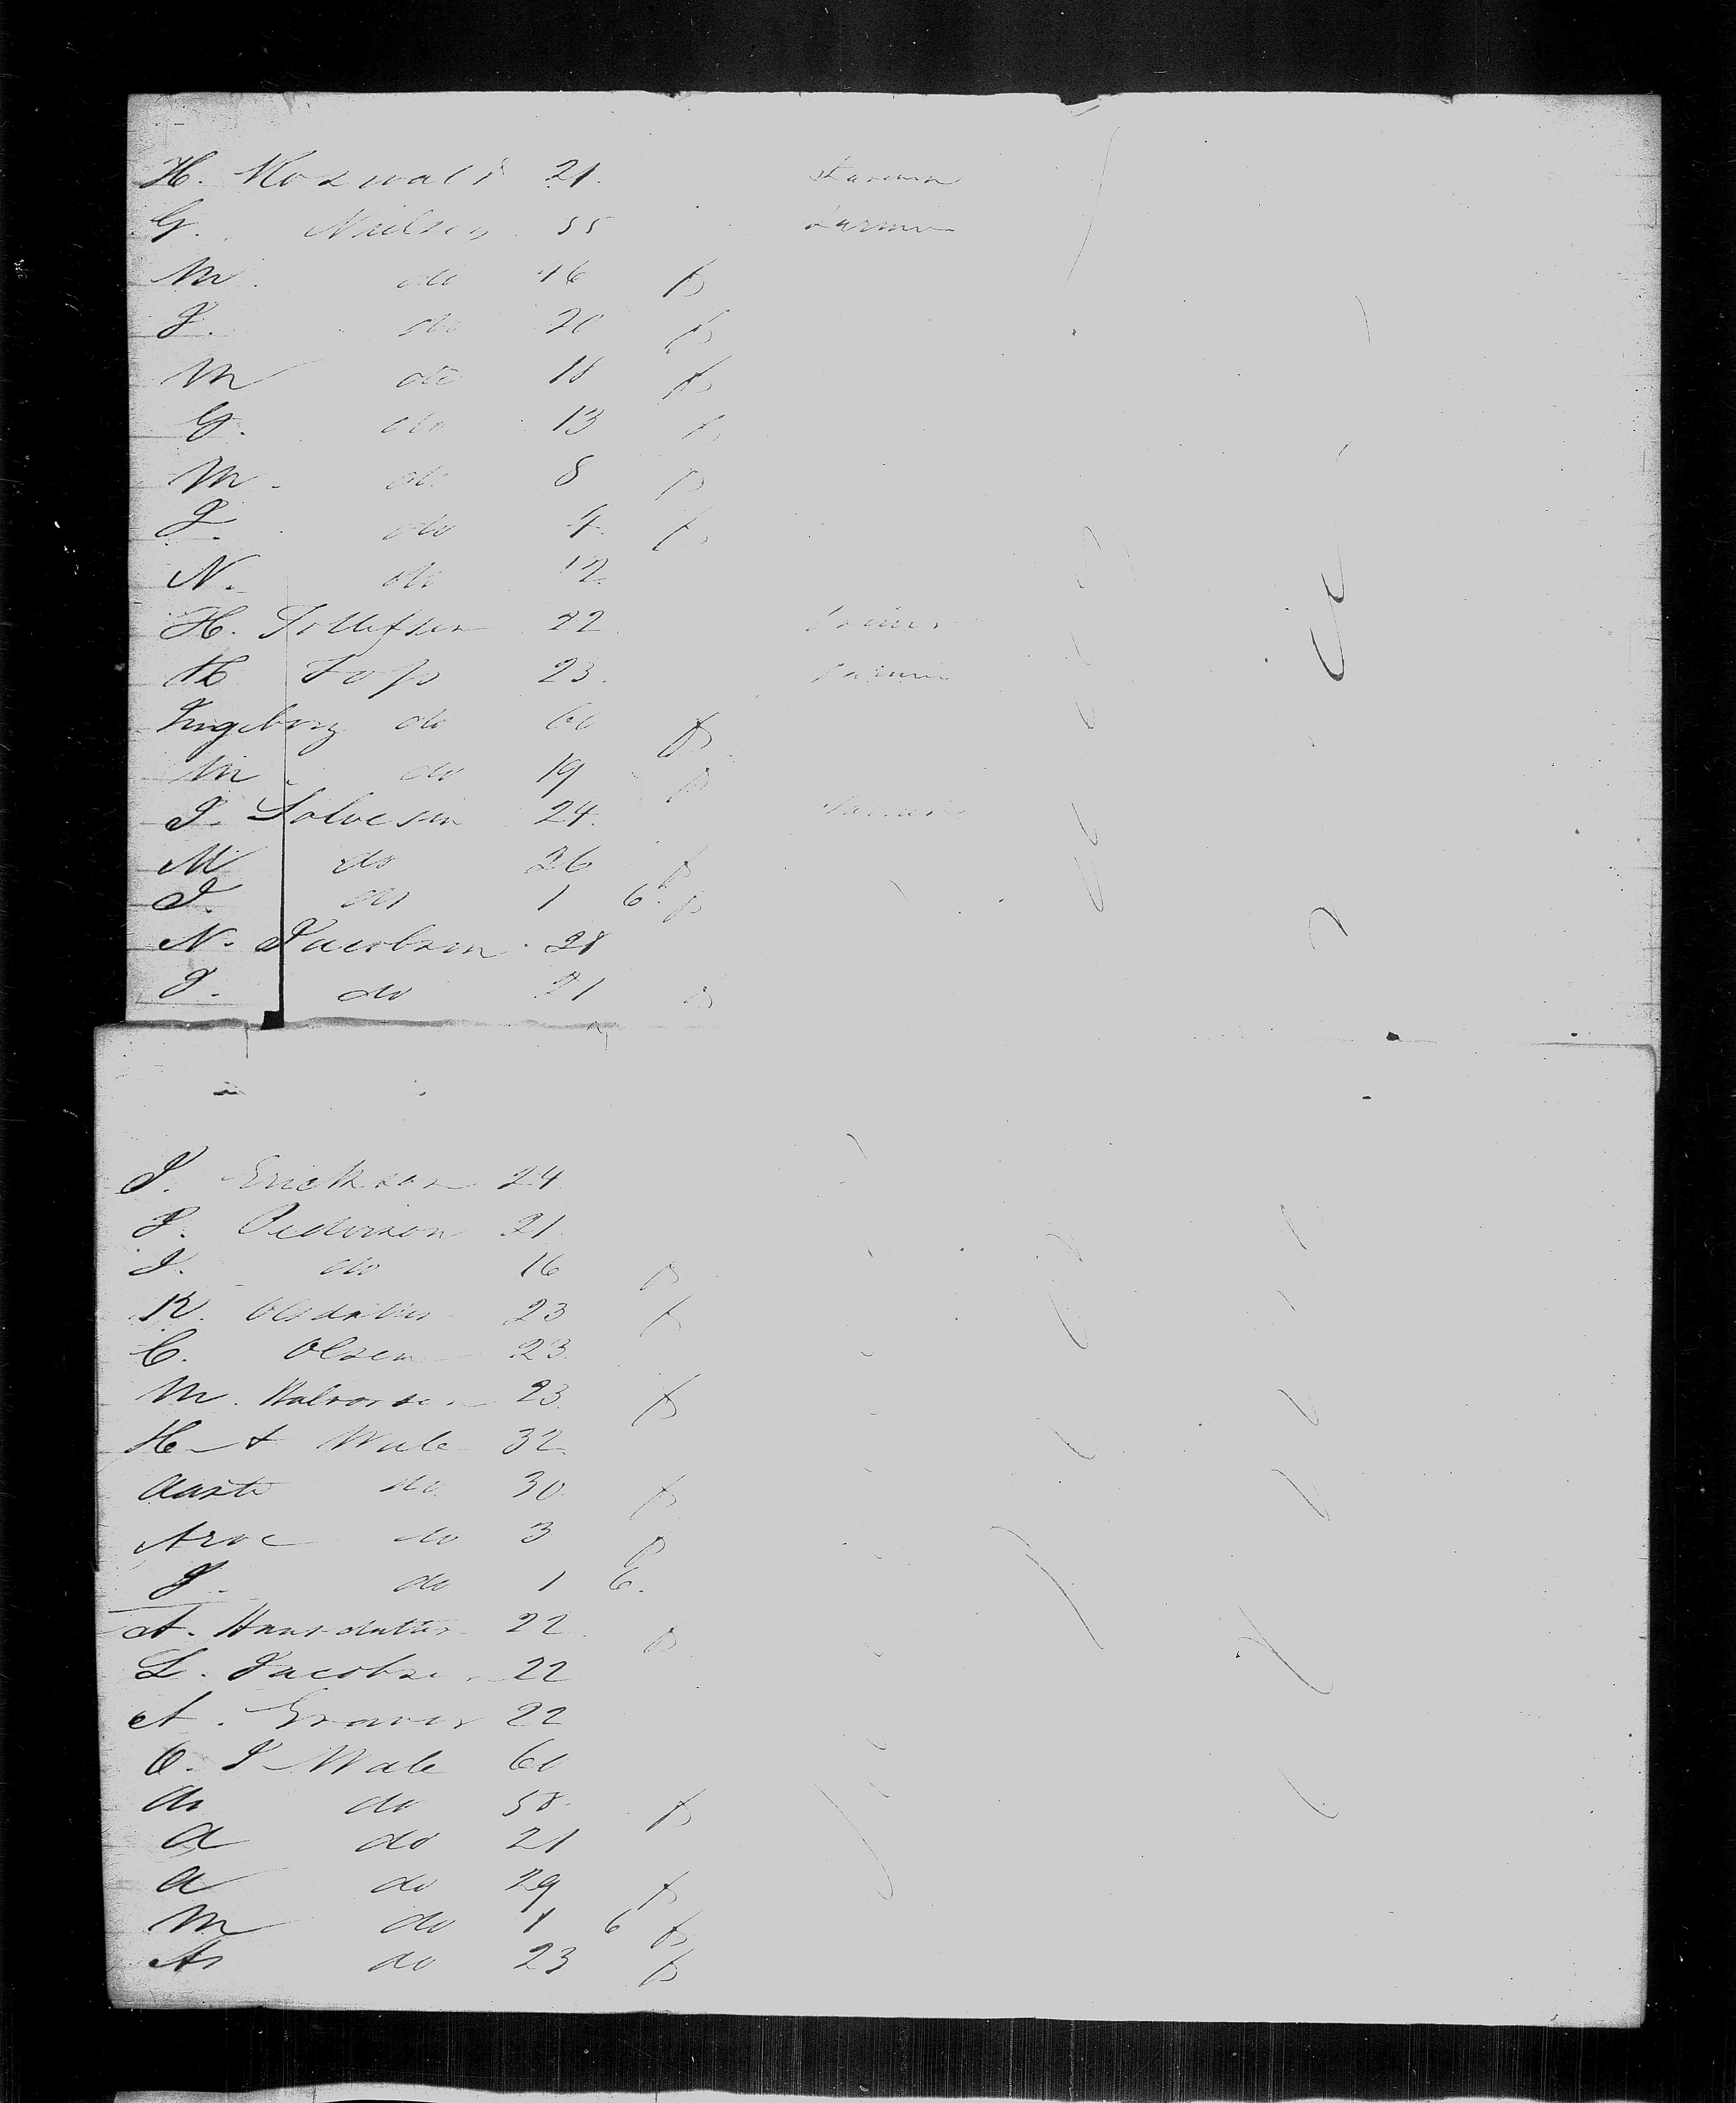 H. 21.
G. Nielsen 55 Farmer
M. do 46 f
J. do 20 f
M do 18 f
G. do 13 f
M. do 8 f
J. do 4 f
N. do 12
H. Tollefsen 22
H 23. Farmer
Ingeborg do 60 f
M. do 19 f
J. Solvesen 24 Farmer
M do 26 f
J. do 1 6 f
N. Jacobsen 28
J. do 21 f
J. Erickson 24
P. Pederson 21.
J. do 16 f
K. Olsdatter 23 f
C. Olsen 23
M. Halvorsen 23 f
H A Wale 32
Aaste do 30 f
do 3
J. do 1 6.
A. Hansdatter 22 f
L. Jacobsen 22
A. 22
O. J Wale 60
do 58 f
A do 21
A do 29 f
M do 1 6 f
do 23 f